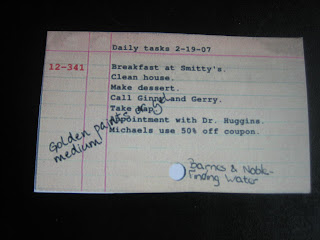 Daily tasks 2-19-07
12-341 Breakfast at Smitty's.
Clean house.
Make dessert.
Call Ginny and Gerry.
Take nap.
Appointment with Dr. Huggins.
Michaels use 50% off coupon.
Golden paints or gel
medium
Barnes & Noble-
Finding Water